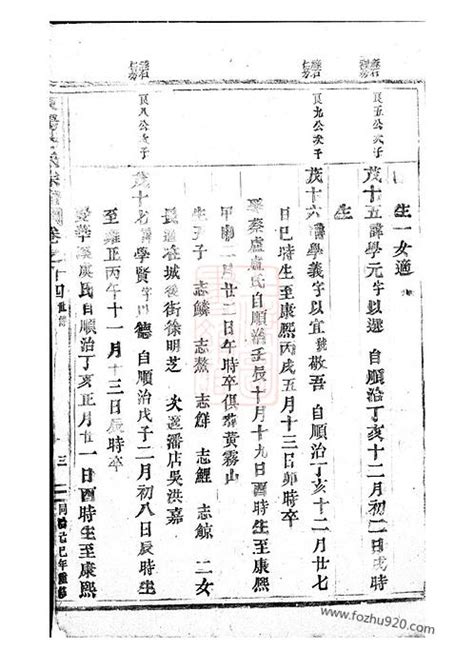 生一女適
良五公次子
茂十五諱學元字以選 自順治丁亥十二月初二日戌時
生
良九公次子
茂十六諱學義字以宜號敬吾 自順治丁亥十二月廿七
日巳時生至康熙丙戌五月十三日卯時卒
秦盧氏自順治壬辰十月十九日酉時生至康熙
甲 二月廿二日午時卒俱葬黃霧山
生五子 志鱗 志鰲 志鮮 志鯉 志鯨 二女
長適在城後街徐明芝 次適潘店吳洪嘉
良八公次子
茂十七諱學賢字 德 自順治戊子二月初八日辰時生
至雍正丙午十一月十三日辰時卒
娶華溪虞氏自順治丁亥正月廿一日酉時生至康熙
十四 三 同治己巳年重修
www.fozhu920.com